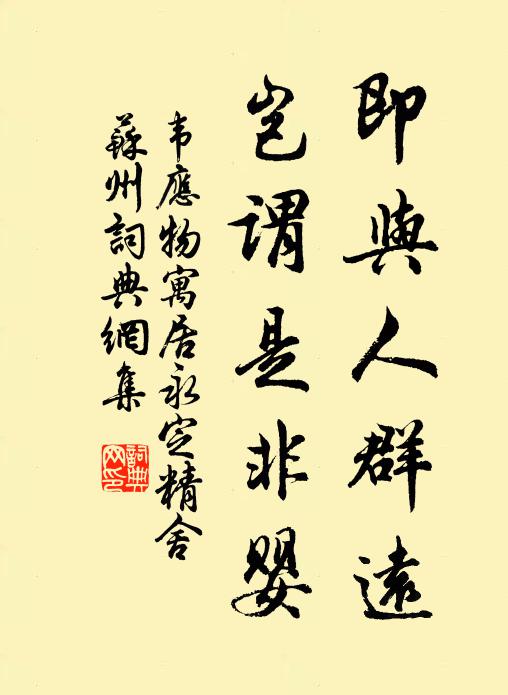 即與人群遠
豈謂是非嬰
韦應物寓居永定精舍
蘇州詞典網集
詞典
网印